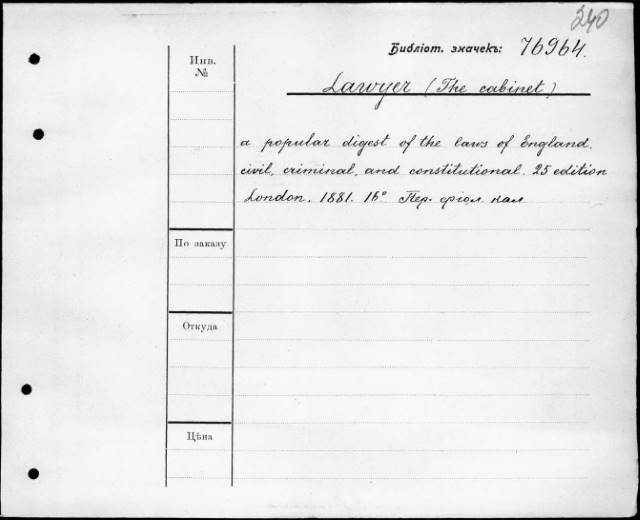 240
Библіот. значекъ: 76964.
Инв.
№
Lawyer (The cabinet)
a popular digest of the laws of England.
civil, criminal, and constitutional. 25 edition
London. 1881. 16° Пер. фіол. кал.
По заказу
Откуда
Цѣна